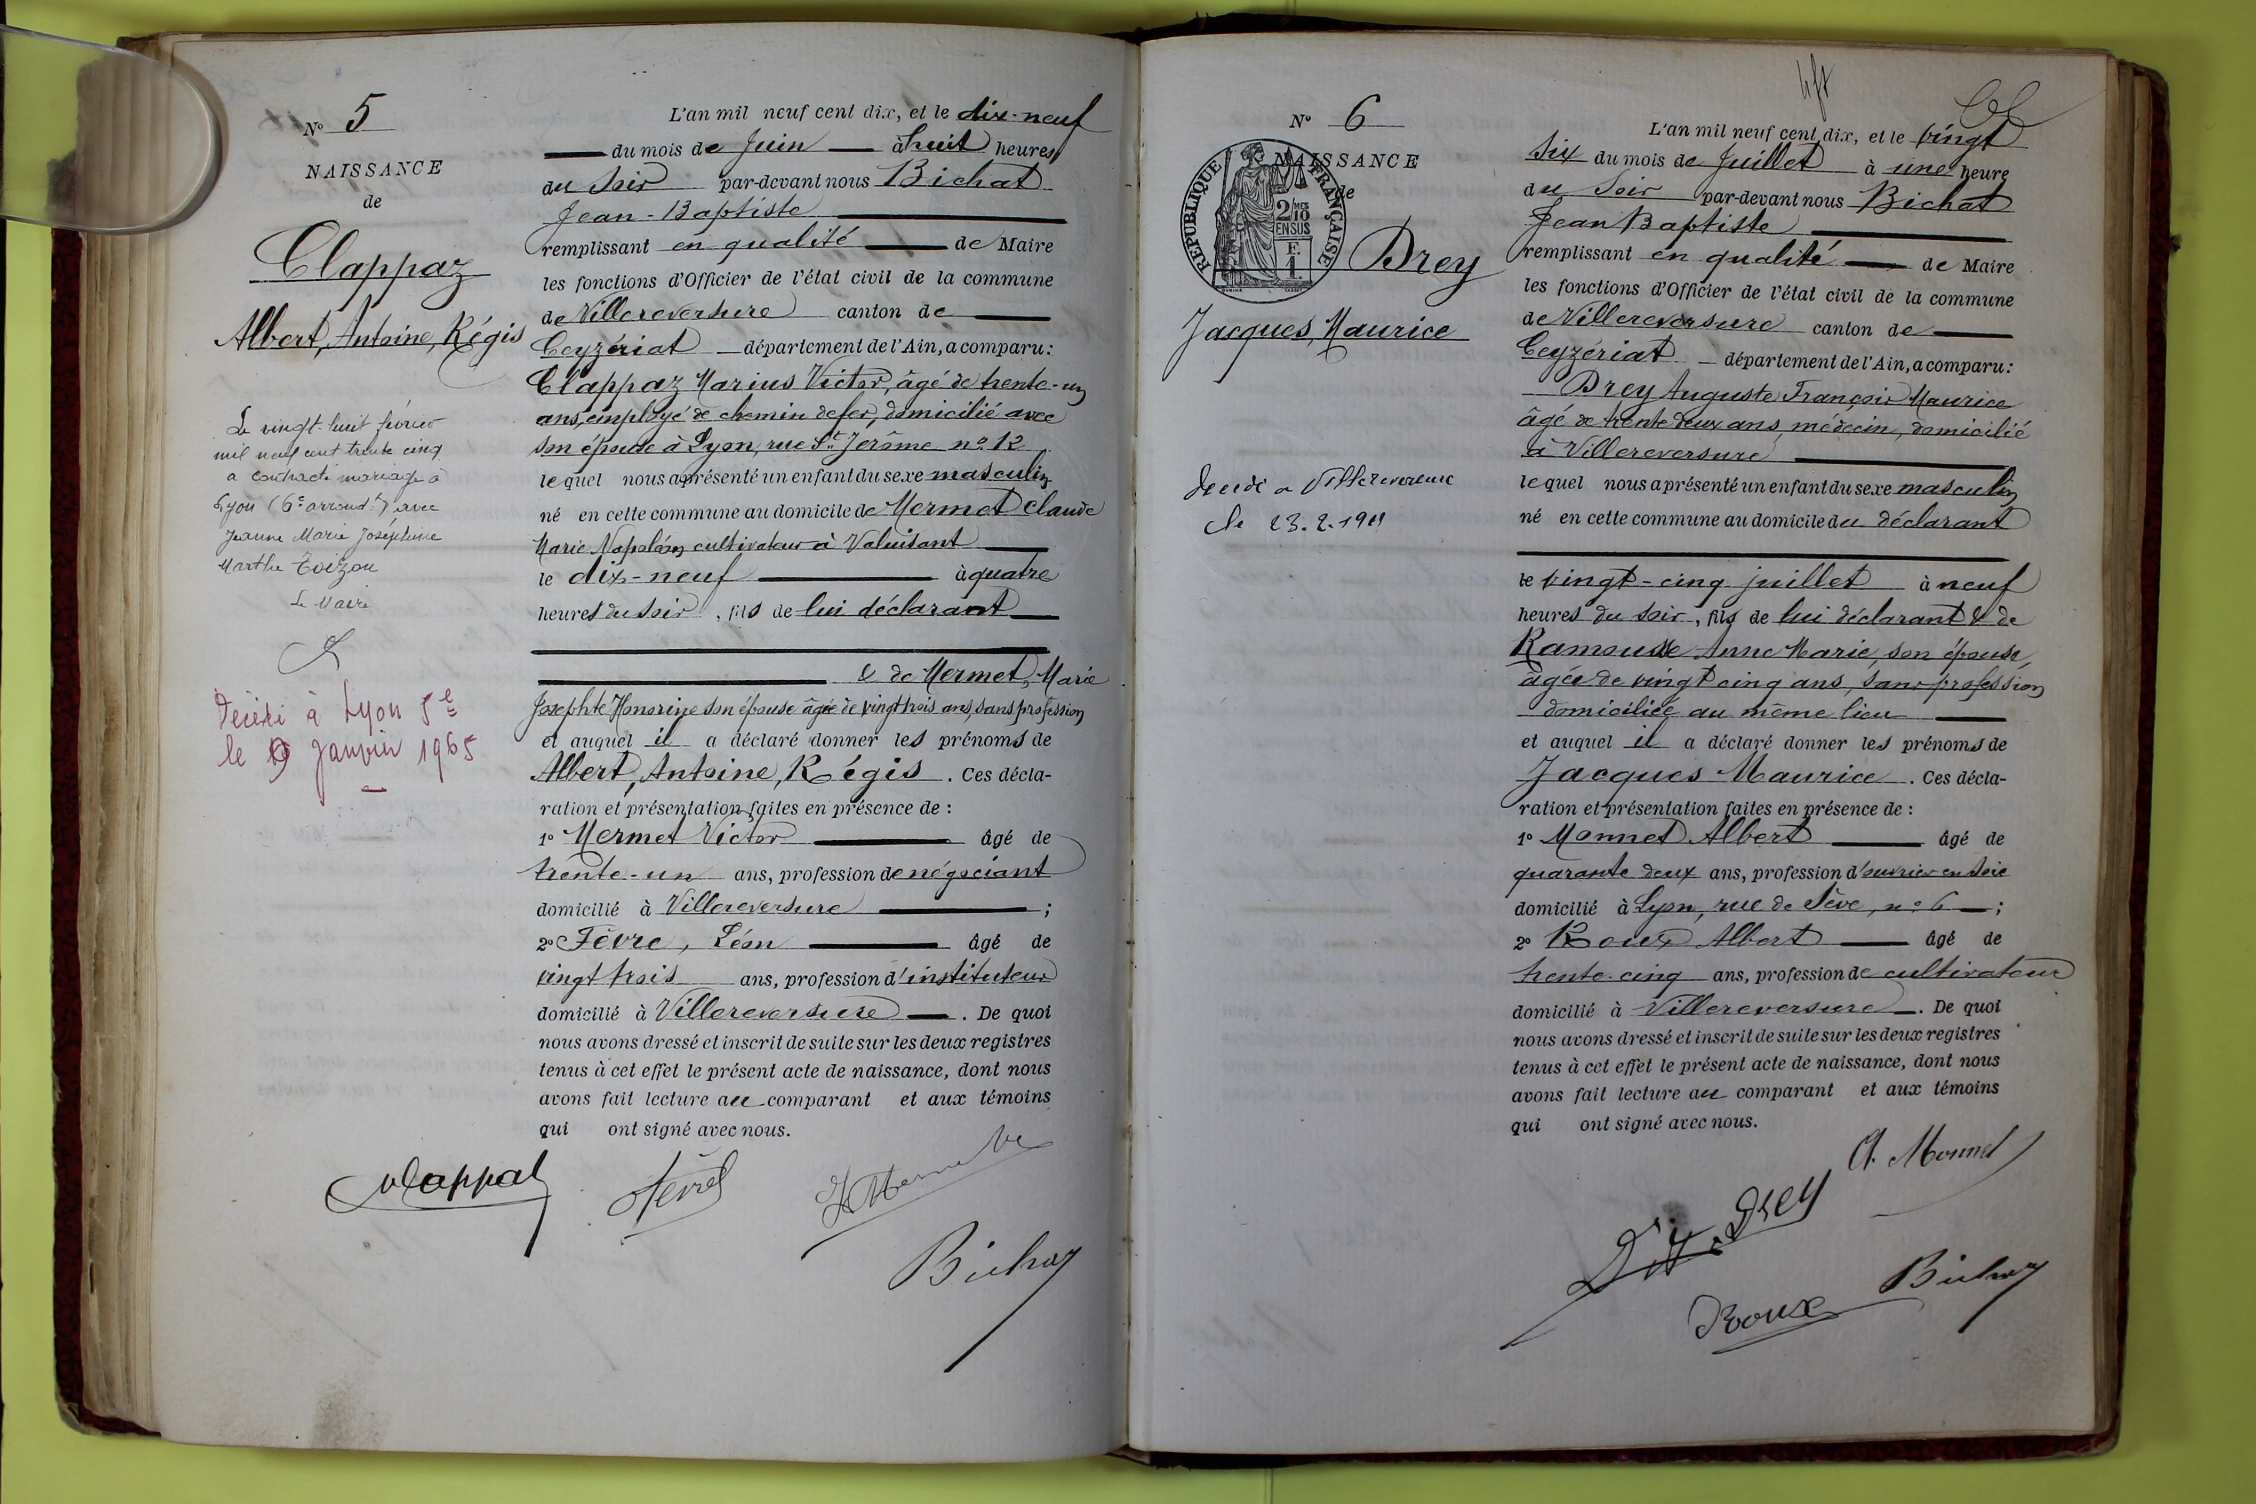 N° 5
NAISSANCE
de
Clappaz
Albert, Antoine, Régis
Le vingt-huit février
mil neuf cent trente cinq
a contracté mariage à
Lyon (6e arrondt) avec
Jeanne Marie Joséphine
Marthe
Le Maire
Décédé à Lyon 5e
le 9 Janvier 1965
L'an mil neuf cent dix, et le dix-neuf
du mois de Juin à huit heures
du soir par-devant nous Bichat
Jean-Baptiste
remplissant en qualité de Maire
les fonctions d'Officier de l'état civil de la commune
de Villereversure canton de
Ceyzériat département de l'Ain, a comparu :
Clappaz Marius Victor, âgé de trente-un
ans, employé de chemin de fer, domicilié avec
son épouse à Lyon, rue St Jérôme no 12
lequel nous a présenté un enfant du sexe masculin
né en cette commune au domicile de Mermet Claude
Marie Napoléon cultivateur à Valuisant
le dix-neuf à quatre
heures du soir, fils de lui déclarant
& de Mermet, Marie
Josephte Honorine son épouse âgée de vingt trois ans, sans profession
et auquel il a déclaré donner les prénoms de
Albert, Antoine, Régis. Ces décla-
ration et présentation faites en présence de :
1° Mermet Victor âgé de
trente-un ans, profession de négociant
domicilié à Villereversure ;
2° Fèvre, Léon âgé de
vingt trois ans, profession d'instituteur
domicilié à Villereversure. De quoi
nous avons dressé et inscrit de suite sur les deux registres
tenus à cet effet le présent acte de naissance, dont nous
avons fait lecture au comparant et aux témoins
qui ont signé avec nous.
Clappaz
Fèvre
Mermet
Bichat
N° 6
NAISSANCE
de
RÉPUBLIQUE FRANÇAISE
2/10 MES
EN SUS
F.
1.
Drey
Jacques, Maurice
Décédé à Villereversure
le 23.2.1911
L'an mil neuf cent dix, et le vingt
six du mois de Juillet à une heure
du soir par-devant nous Bichat
Jean Baptiste
remplissant en qualité de Maire
les fonctions d'Officier de l'état civil de la commune
de Villereversure canton de
Ceyzériat département de l'Ain, a comparu :
Drey Auguste François Maurice
âgé de trente deux ans, médecin, domicilié
à Villereversure
lequel nous a présenté un enfant du sexe masculin
né en cette commune au domicile du déclarant
le vingt-cinq juillet à neuf
heures du soir, fils de lui déclarant & de
Ramousse Anne Marie, son épouse,
âgée de vingt cinq ans, sans profession
domiciliée au même lieu
et auquel il a déclaré donner les prénoms de
Jacques Maurice. Ces décla-
ration et présentation faites en présence de :
1° Monnet Albert âgé de
quarante deux ans, profession d'ouvrier en soie
domicilié à Lyon, rue de Sève, no 6 ;
2° Roux Albert âgé de
trente-cinq ans, profession de cultivateur
domicilié à Villereversure. De quoi
nous avons dressé et inscrit de suite sur les deux registres
tenus à cet effet le présent acte de naissance, dont nous
avons fait lecture au comparant et aux témoins
qui ont signé avec nous.
A. Monnet
Drey
Bichat
Roux